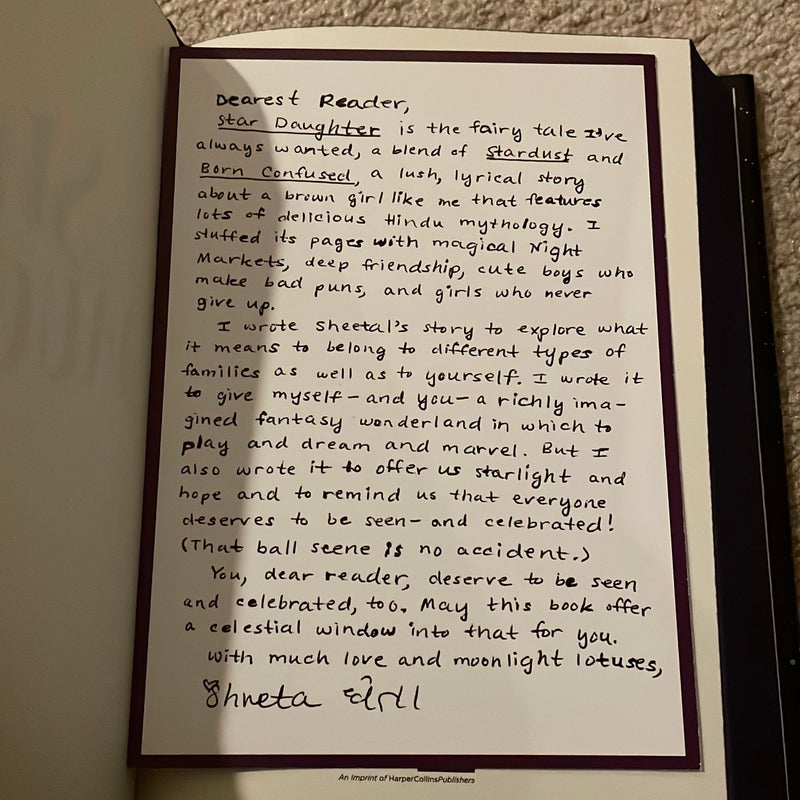 Dearest Reader,
Star Daughter is the fairy tale I've
always wanted, a blend of Stardust and
Born Confused, a lush, lyrical story
about a brown girl like me that features
lots of delicious Hindu mythology. I
stuffed its pages with magical Night
Markets, deep friendship, cute boys who
make bad puns, and girls who never
give up.
I wrote Sheetal's story to explore what
it means to belong to different types of
families as well as to yourself. I wrote it
to give myself—and you—a richly ima-
gined fantasy wonderland in which to
play and dream and marvel. But I
also wrote it to offer us starlight and
hope and to remind us that everyone
deserves to be seen—and celebrated!
(That ball scene is no accident.)
You, dear reader, deserve to be seen
and celebrated, too. May this book offer
a celestial window into that for you.
With much love and moonlight lotuses,
Shveta
An Imprint of HarperCollinsPublishers